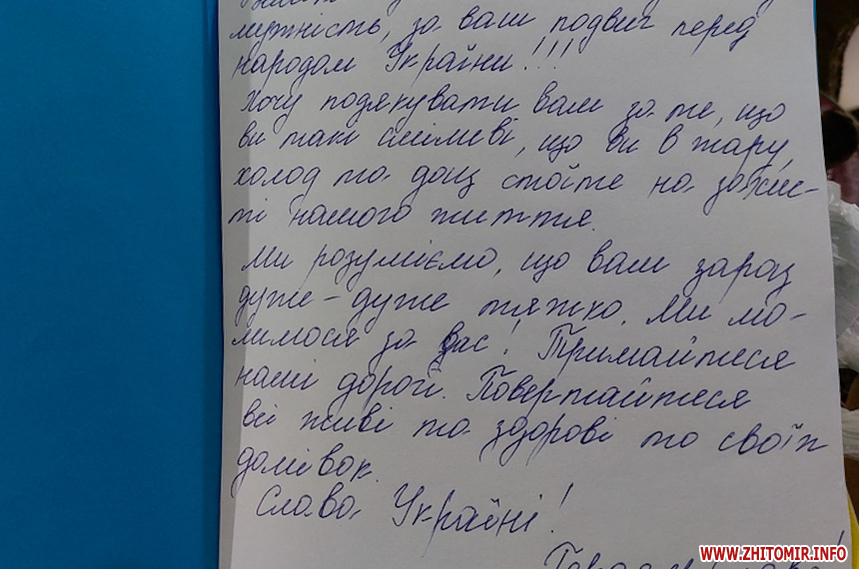 мужність, за ваш подвиг перед
народом України!!!
Хочу подякувати вам за те, що
ви такі сміливі, що ви в жару,
холод та дощ стоїте на захис-
ті нашого життя.
Ми розуміємо, що вам зараз
дуже-дуже тяжко. Ми мо-
лимося за вас! Тримайтеся
наші дорогі. Повертайтеся
всі живі та здорові до своїх
домівок.
Слава Україні!
WWW.ZHITOMIR.INFO